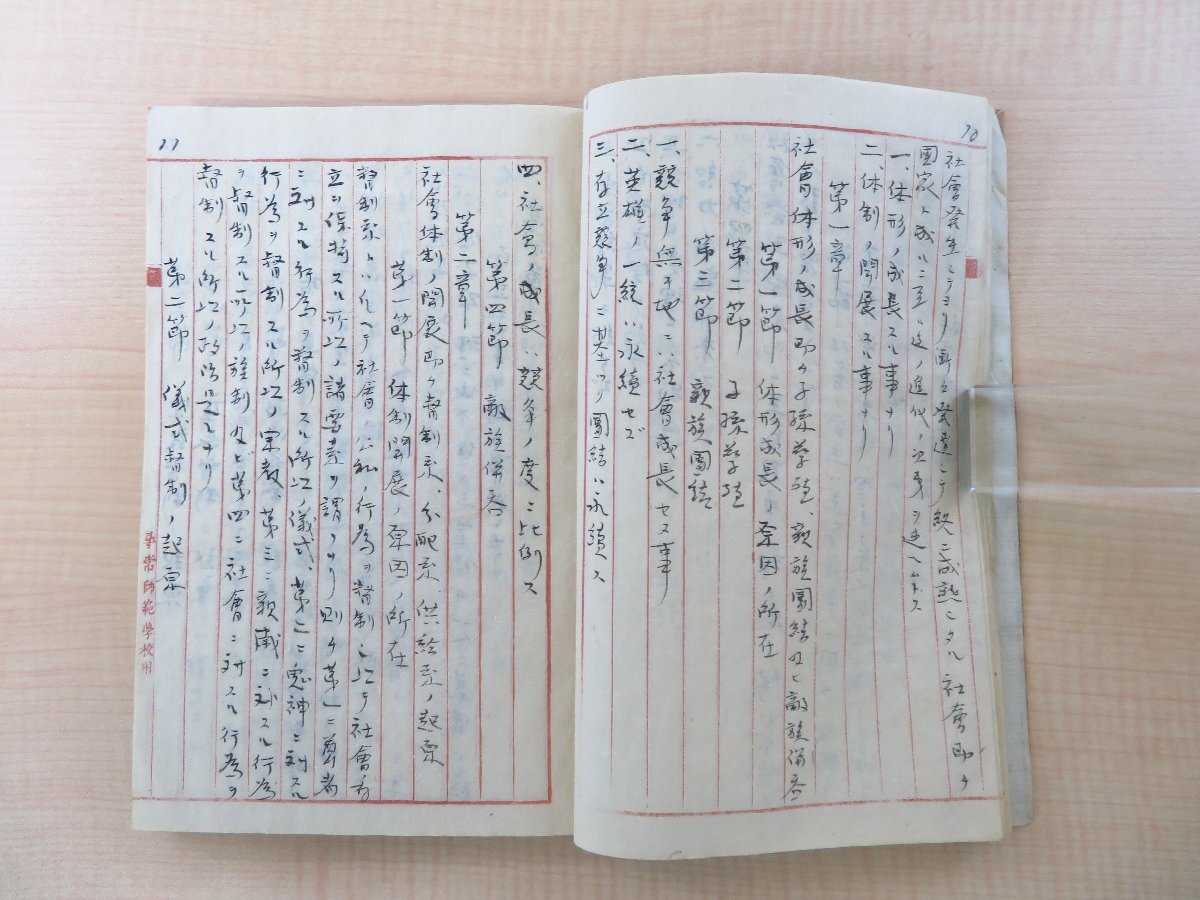 70
社會発生シテヨリ漸々発達シテ終ニ成熟シタル社會即チ
国家ト成ルニ至ル迄ノ進化ノ次第ヲ述ヘントス
一、体形ノ成長スル事ナリ
二、体制ノ開展スル事ナリ
第一章
社會体形ノ成長即ケ子孫蕃殖、親族團結及ヒ敵族併吞
第一節 体形成長ノ原因ノ所在
第二節 子孫蕃殖
第三節 親族團結
一、競争無キ地ニハ社會成長セヌ事
二、英雄ノ一統ハ永續セズ
三、存立競争ニ基ツク團結ハ永續ス
27
四、社會ノ成長ハ競争ノ度ニ比例ス
第四節 敵族併吞
第二章
社會体制ノ開展即ケ督制系、分配系、供給系ノ起原
第一節 体制開展ノ原因ノ所在
督制系トハ社會ノ公私ノ行為ヲ督制シ以テ社會
立ヲ保持スル所以ノ諸雪系ヲ謂フナリ則ケ第一ニ尊者
ニ対スル行為ヲ督制スル所以ノ儀式、第二ニ鬼神ニ対スル
行為ヲ督制スル所以ノ宗教、第三ニ親戚ニ対スル行為
ヲ督制スル所以ノ族制及ビ第四ニ社會ニ対スル行為ヲ
督制スル所以ノ政治是レナリ
第二節 儀式督制ノ起原
尋常師範學校用